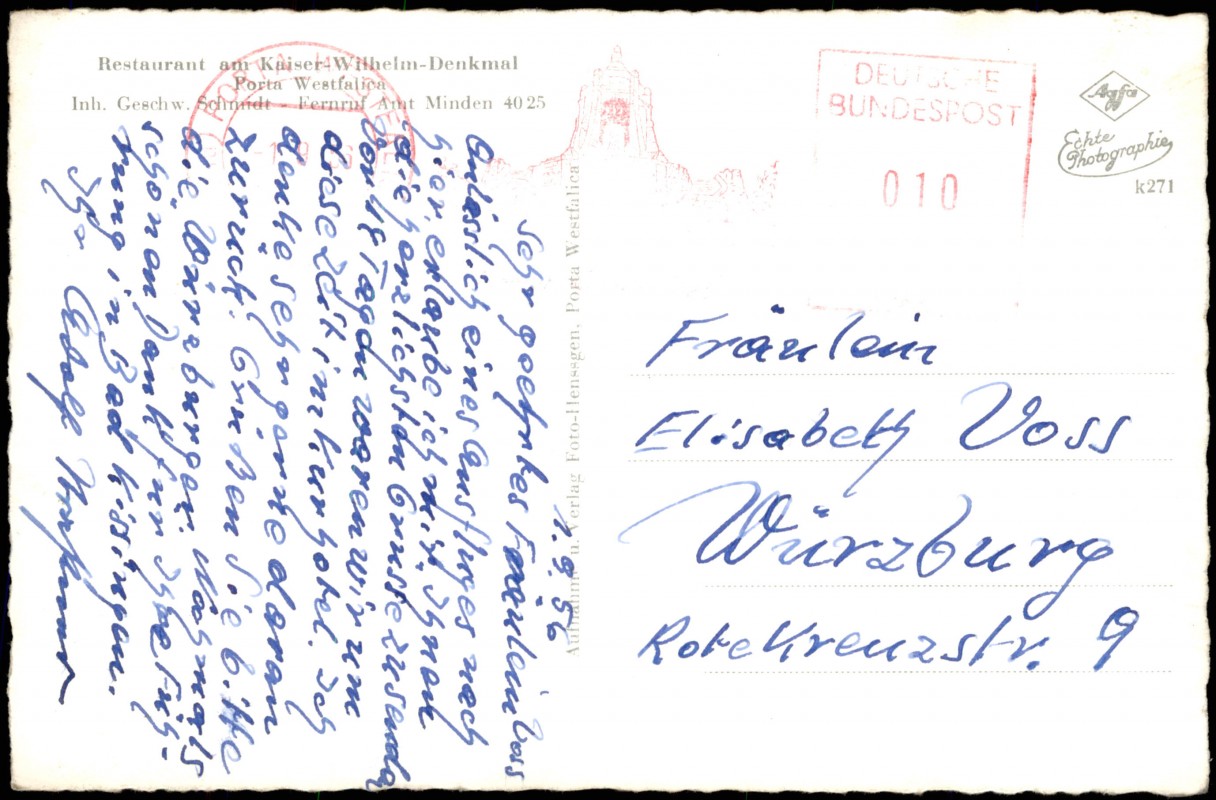 Restaurant am Kaiser-Wilhelm-Denkmal
Porta Westfalica
Inh. Geschw. Schmidt - Fernruf Amt Minden 4025
DEUTSCHE
BUNDESPOST
010
Agfa
Echte
Photographie
k271
Aufnahme u. Verlag Foto-Henssgen, Porta Westfalica
1.9.56
Sehr geehrtes Fräulein Voss
Anlässlich eines Ausfluges nach
hier, erlaube ich mir, Ihnen
die herzlichsten Grüsse zu senden
Vor 14 Tagen waren wir um
diese Zeit im Kurhotel. Ich
denke sehr gerne daran
zurück. Grüßen Sie bitte
die Würzburger. Nochmals
schönen Dank für Ihre Füh-
rung in Bad Kissingen.
Ihr Adolf
Fräulein
Elisabeth Voss
Würzburg
Rote Kreuzstr. 9